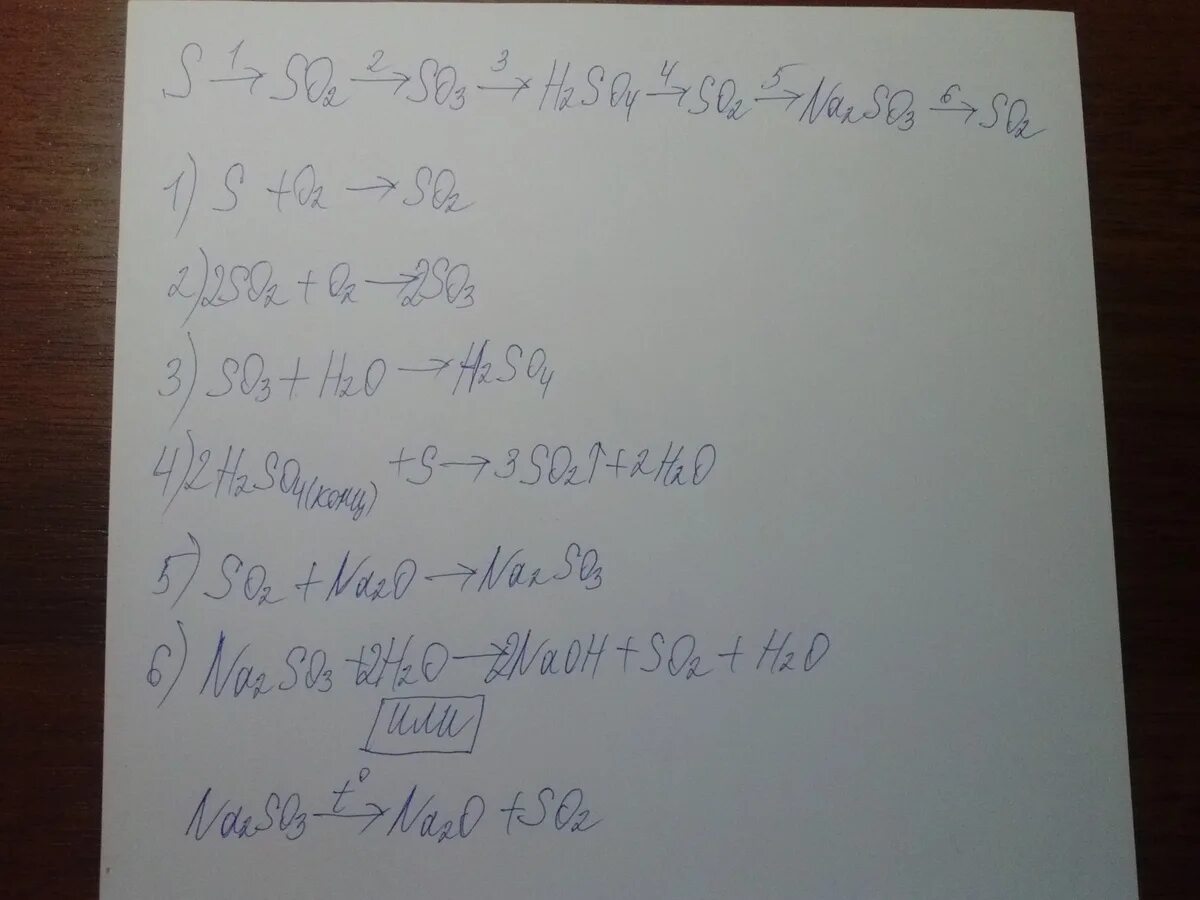 S 1→ SO₂ 2→ SO₃ 3→ H₂SO₄ 4→ SO₂ 5→ Na₂SO₃ 6→ SO₂
1) S + O₂ → SO₂
2) 2SO₂ + O₂ → 2SO₃
3) SO₃ + H₂O → H₂SO₄
4) 2H₂SO₄(конц) + S → 3SO₂↑ + 2H₂O
5) SO₂ + Na₂O → Na₂SO₃
6) Na₂SO₃ + 2H₂O → 2NaOH + SO₂ + H₂O
или
Na₂SO₃ t°→ Na₂O + SO₂